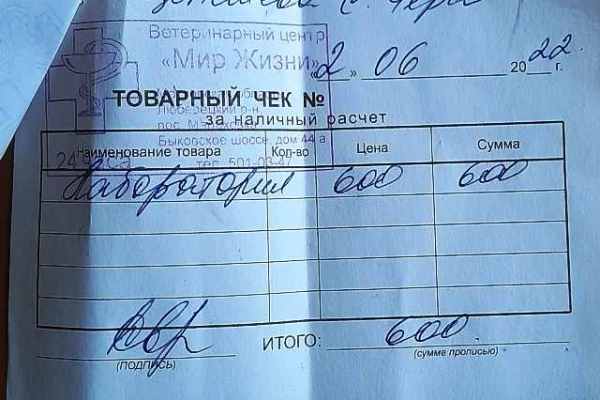 Ветеринарный центр
«Мир Жизни»
«2» 06 2022 г.
ТОВАРНЫЙ ЧЕК №
за наличный расчет
Люберецкий р-н
Быковское шоссе, дом 44 а
24 часа тел. 501-03-47
Наименование товара Кол-во Цена Сумма
Лаборатория 600 600
ИТОГО: 600
(ПОДПИСЬ) (сумма прописью)